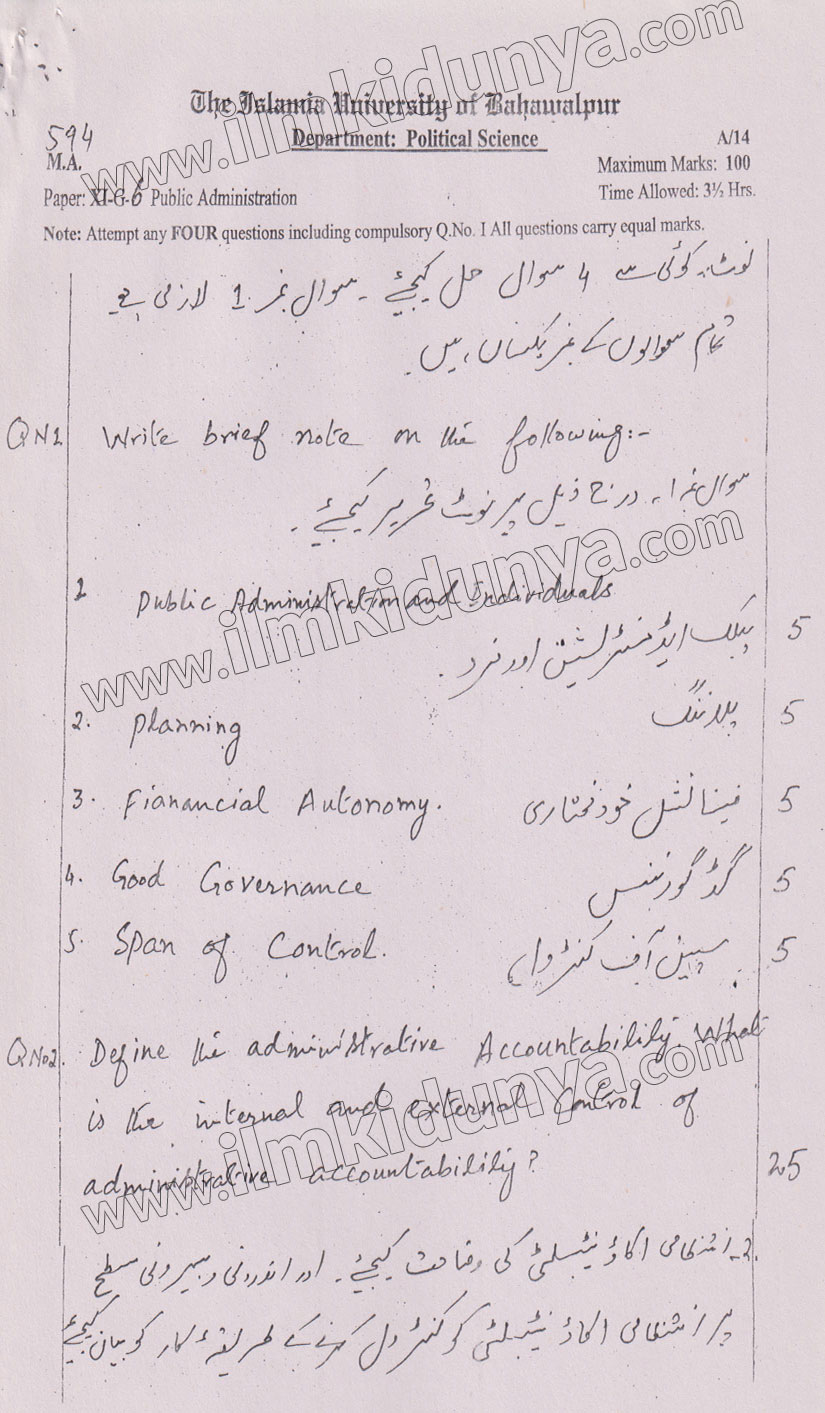 www.ilmkidunya.com
The Islamia University of Bahawalpur
594
Department: Political Science
A/14
M.A.
Maximum Marks: 100
Paper: XI-G-6 Public Administration
Time Allowed: 3½ Hrs.
Note: Attempt any FOUR questions including compulsory Q.No. I All questions carry equal marks.
نوٹ:۔ کوئی سے 4 سوال حل کیجئے ۔ سوال نمبر 1 لازمی ہے۔
تمام سوالوں کے نمبر یکساں ہیں۔
QN1 Write brief note on the following:-
سوال نمبر ا، درج ذیل پر نوٹ تحریر کیجئے ۔
www.ilmkidunya.com
1 Public Administration and Individuals
پبلک ایڈمنسٹریشن اور فرد . 5
2. Planning پلاننگ 5
3. Fianancial Autonomy. فینانشل خودمختاری 5
4. Good Governance گڈ گورننس 5
5. Span of Control. سپین آف کنٹرول 5
QNo2. Define the administrative Accountability. What
is the internal and external Control of
www.ilmkidunya.com
administrative accountability? 25
2۔ انتظامی اکاؤنٹیبلٹی کی وضاحت کیجئے۔ اور اندرونی و بیرونی سطح
پر انتظامی اکاؤنٹیبلٹی کو کنٹرول کرنے کے طریقۂ کار کو بیان کیجئے